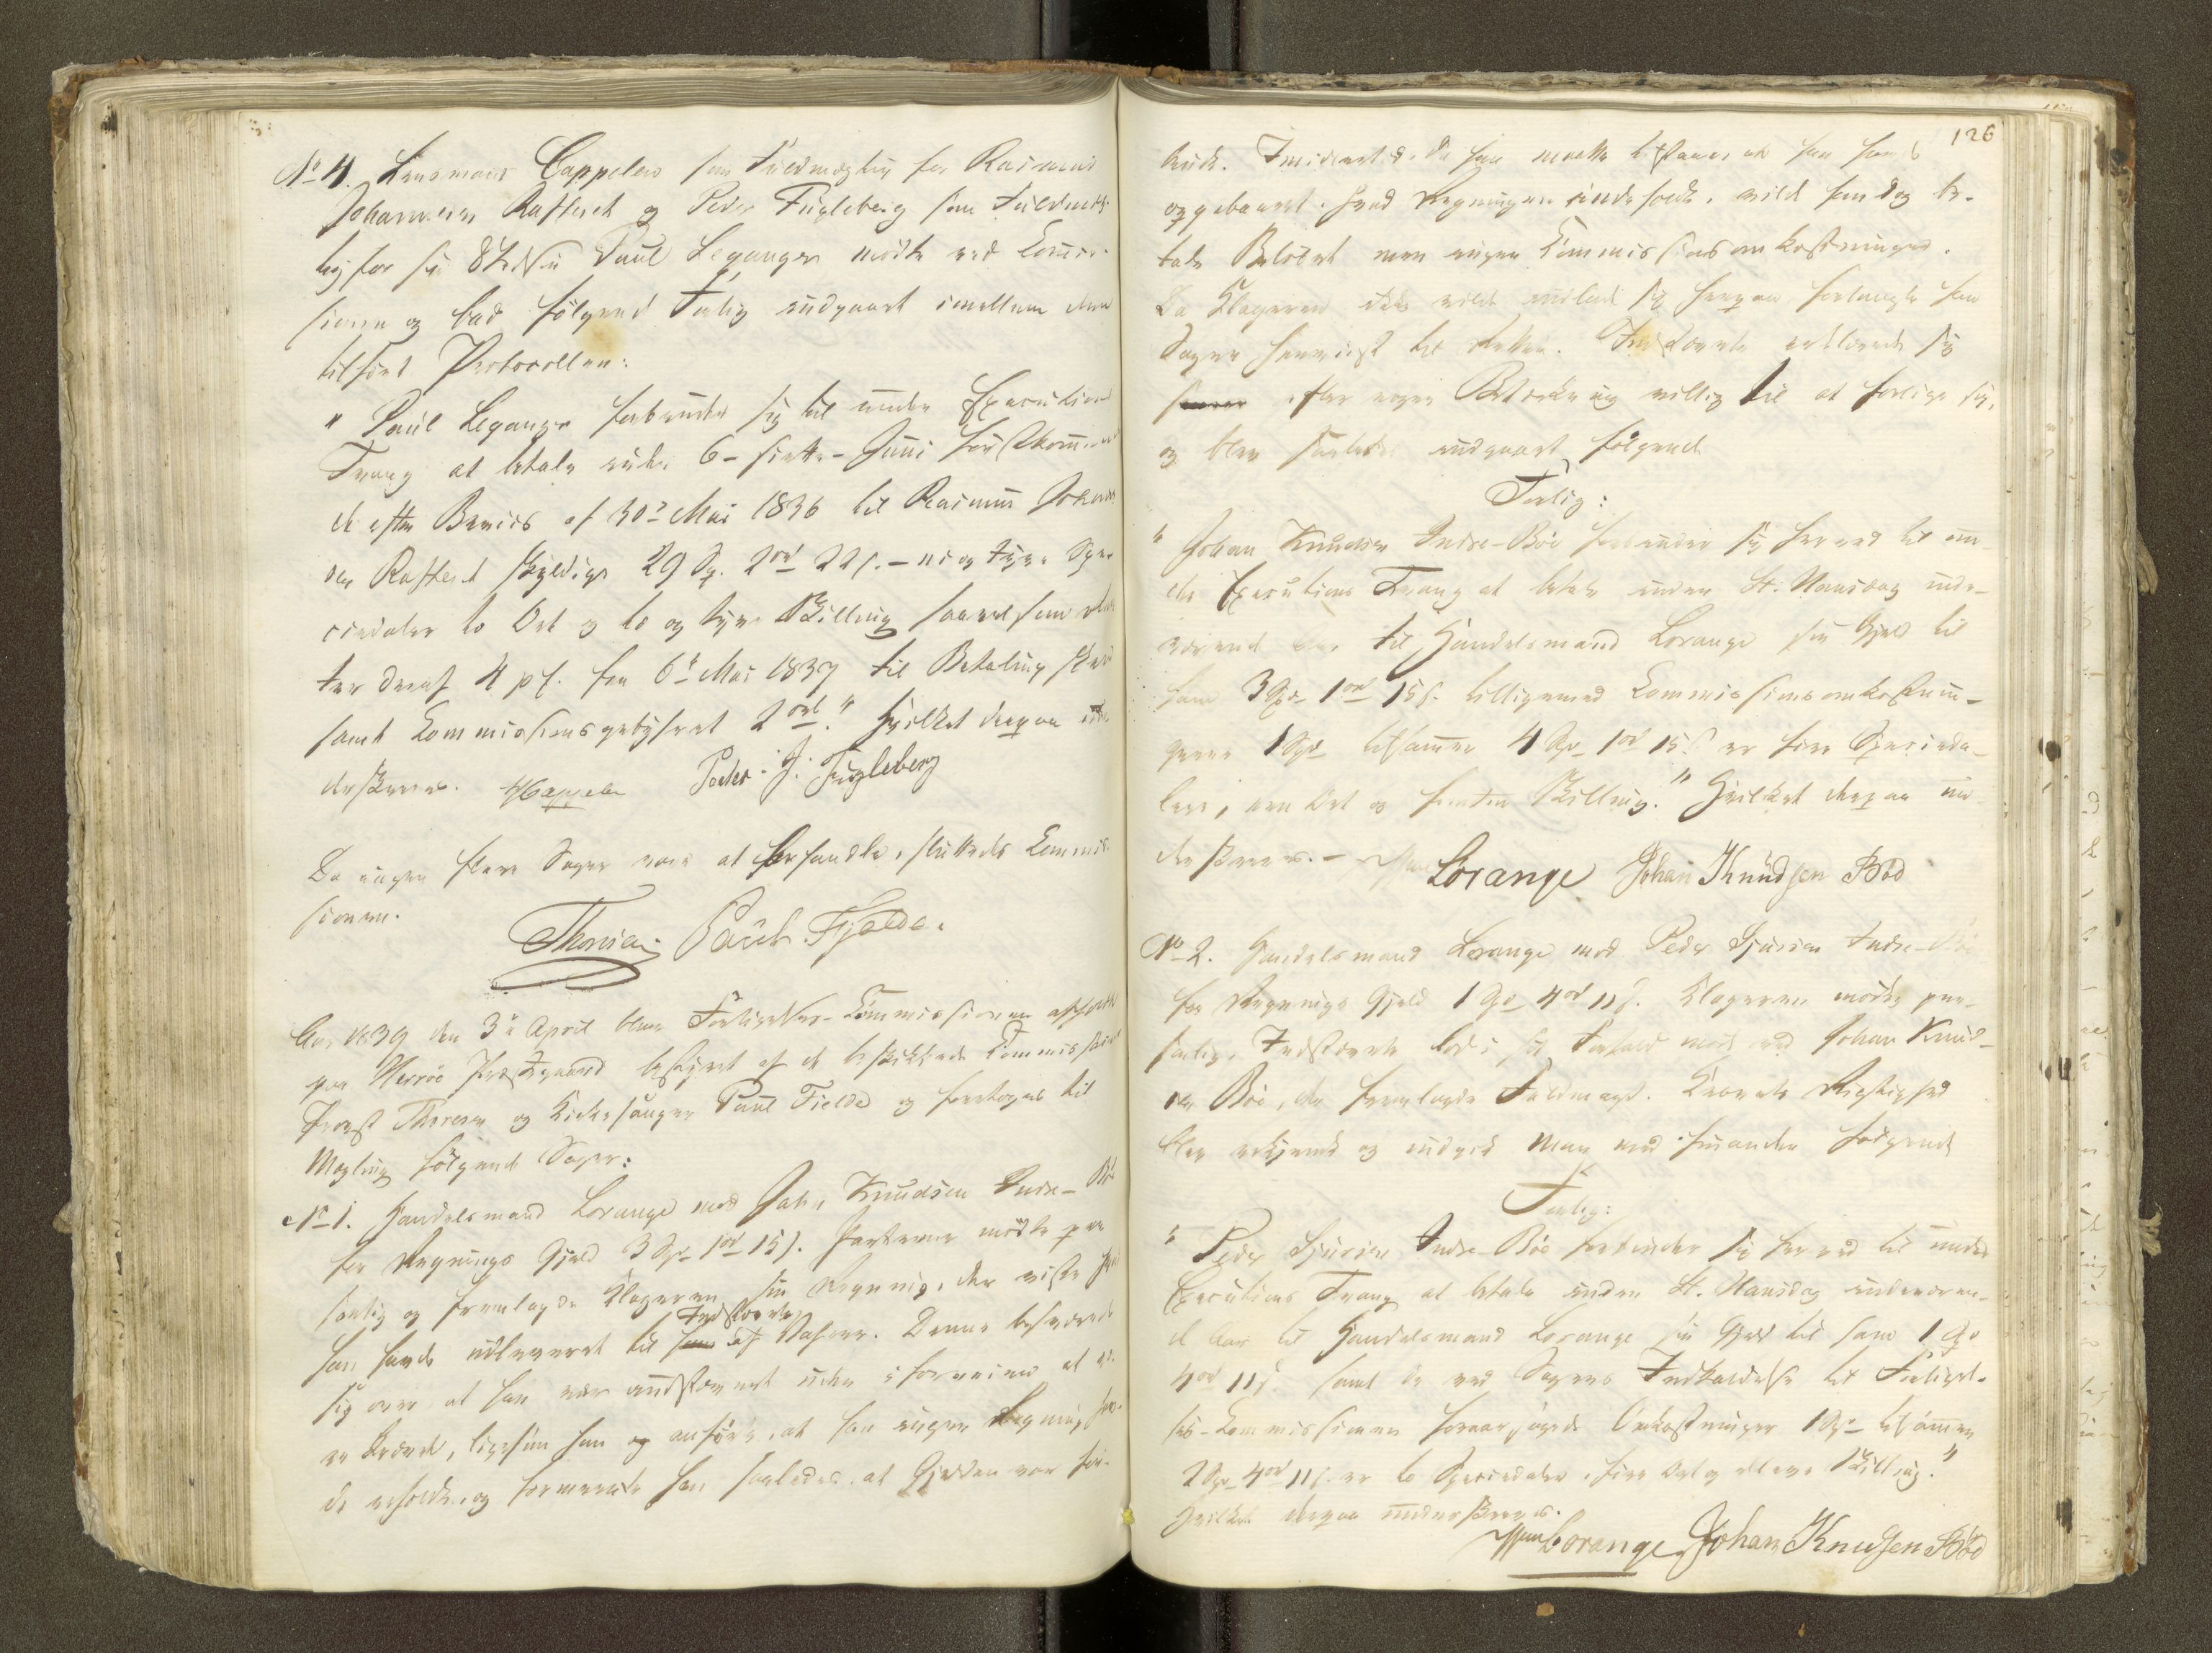 No 4. Lensmand Cappelen som Fuldmægtig for Rasmus
Johannesen Rafteset og Peder Fugleberg som Fuldmæg-
tig for sin Paul Leganger mødte ved Commis-
sionen og bad følgende Forlig indgaaet imellem dem
tilført Protocollen:
" Paul Leganger forbinder sig til under Executions
Tvang at betale inden 6 - siette - Juni førstkommen-
de efter Beviis af 30te Mai 1836 til Rasmus Johanne-
sen Rafteset skyldige 29 Sp. 2 ort 22 s. - ni og tyve Spe-
ciedaler to Ort og to og tyve Skilling saavelsom Ren-
ter deraf 4 pC. fra 6te Mai 1837 til Betaling skeer
samt Commissionsgebyhret 2 ort." Hvilket herpaa un-
derskreves. Cappelen Peder J. Fugleberg
Da ingen flere Sager vare at behandle, sluttedes Commis-
sionen.
Paul Fjelde.
Aar 1839 den 3die April blev Forligelses-Commissionen afholdt
paa Herröe Præstegaard bestyret af de beskikkede Commissairer
Provst Thoresen og Kirkesanger Paul Fielde og foretoges til
Mægling følgende Sager:
No 1. Handelsmand Lorange mod Johan Knudsen Indre-Böe
for Regnings Gjeld 3 Sp 1 ort 15 s. Parterne mødte per-
sonlig og fremlagde Klageren sin Regning, der viste hvad
han havde udleveret til Indstævnte af Vahrer. Denne besværede
sig over at han var indstævnet uden i forveien at væ-
re krævet, ligesom han og anførte, at han ingen Regning hav-
de erholdt, og formeente han saaledes at Gjelden var for-
126
budt. Imidlertid, da han maatte tilstaae, at han havde
oppebaaret hvad Regningen indeholdt, vilde han dog be-
tale Beløbet men ingen Commissionsomkostninger.
Da Klageren ikke vilde indlade sig herpaa forlangte han
Sagen henviist til Retten. Indstævnte erklærede sig
efter nogen Betænkning villig til at forlige sig,
og blev saaledes indgaaet følgende
Forlig:
" Johan Knudsen Indre-Böe forbinder sig herved til un-
der Executions Tvang at betale inden St. Hansdag inde-
værende Aar til Handelsmand Lorange sin Gjeld til
ham 3 Sp 1 ort 15 s. tilligemed Commissionsomkostnin-
gerne 1 Sp tilsammen 4 Sp 1 ort 15 s er fire Spesieda-
lere, een Ort og femten Skilling." Hvilket herpaa un-
derskreves. - Lorange Johan Knudsen Böe
No 2. Handelsmand Lorange mod Peder Sjursen Indre-Böe
for Regnings Gjeld 1 Sp 4 ort 11 s. Klageren mødte per-
sonlig, Indstævnte lod i sit Forfald møde ved Johan Knud-
sen Böe, der fremlagde Fuldmagt. Kravets Rigtighed
blev erkjendt og indgik Man med hinanden følgende
Forlig:
" Peder Sjursen Indre-Böe forbinder sig herved til under
Executions Tvang at betale inden St. Hansdag indeværen-
de Aar til Handelsmand Lorange sin Gjeld til ham 1 Sp
4 ort 11 s samt de ved Sagens Indkaldelse til Forligel-
ses-Commissionen foraarsagede Omkostninger 1 Sp tilsammen
2 Sp 4 ort 11 s. er to Speciedaler, fire Ort og elleve Skilling."
Hvilket herpaa underskreves.
Lorange Johan Knudsen Böe